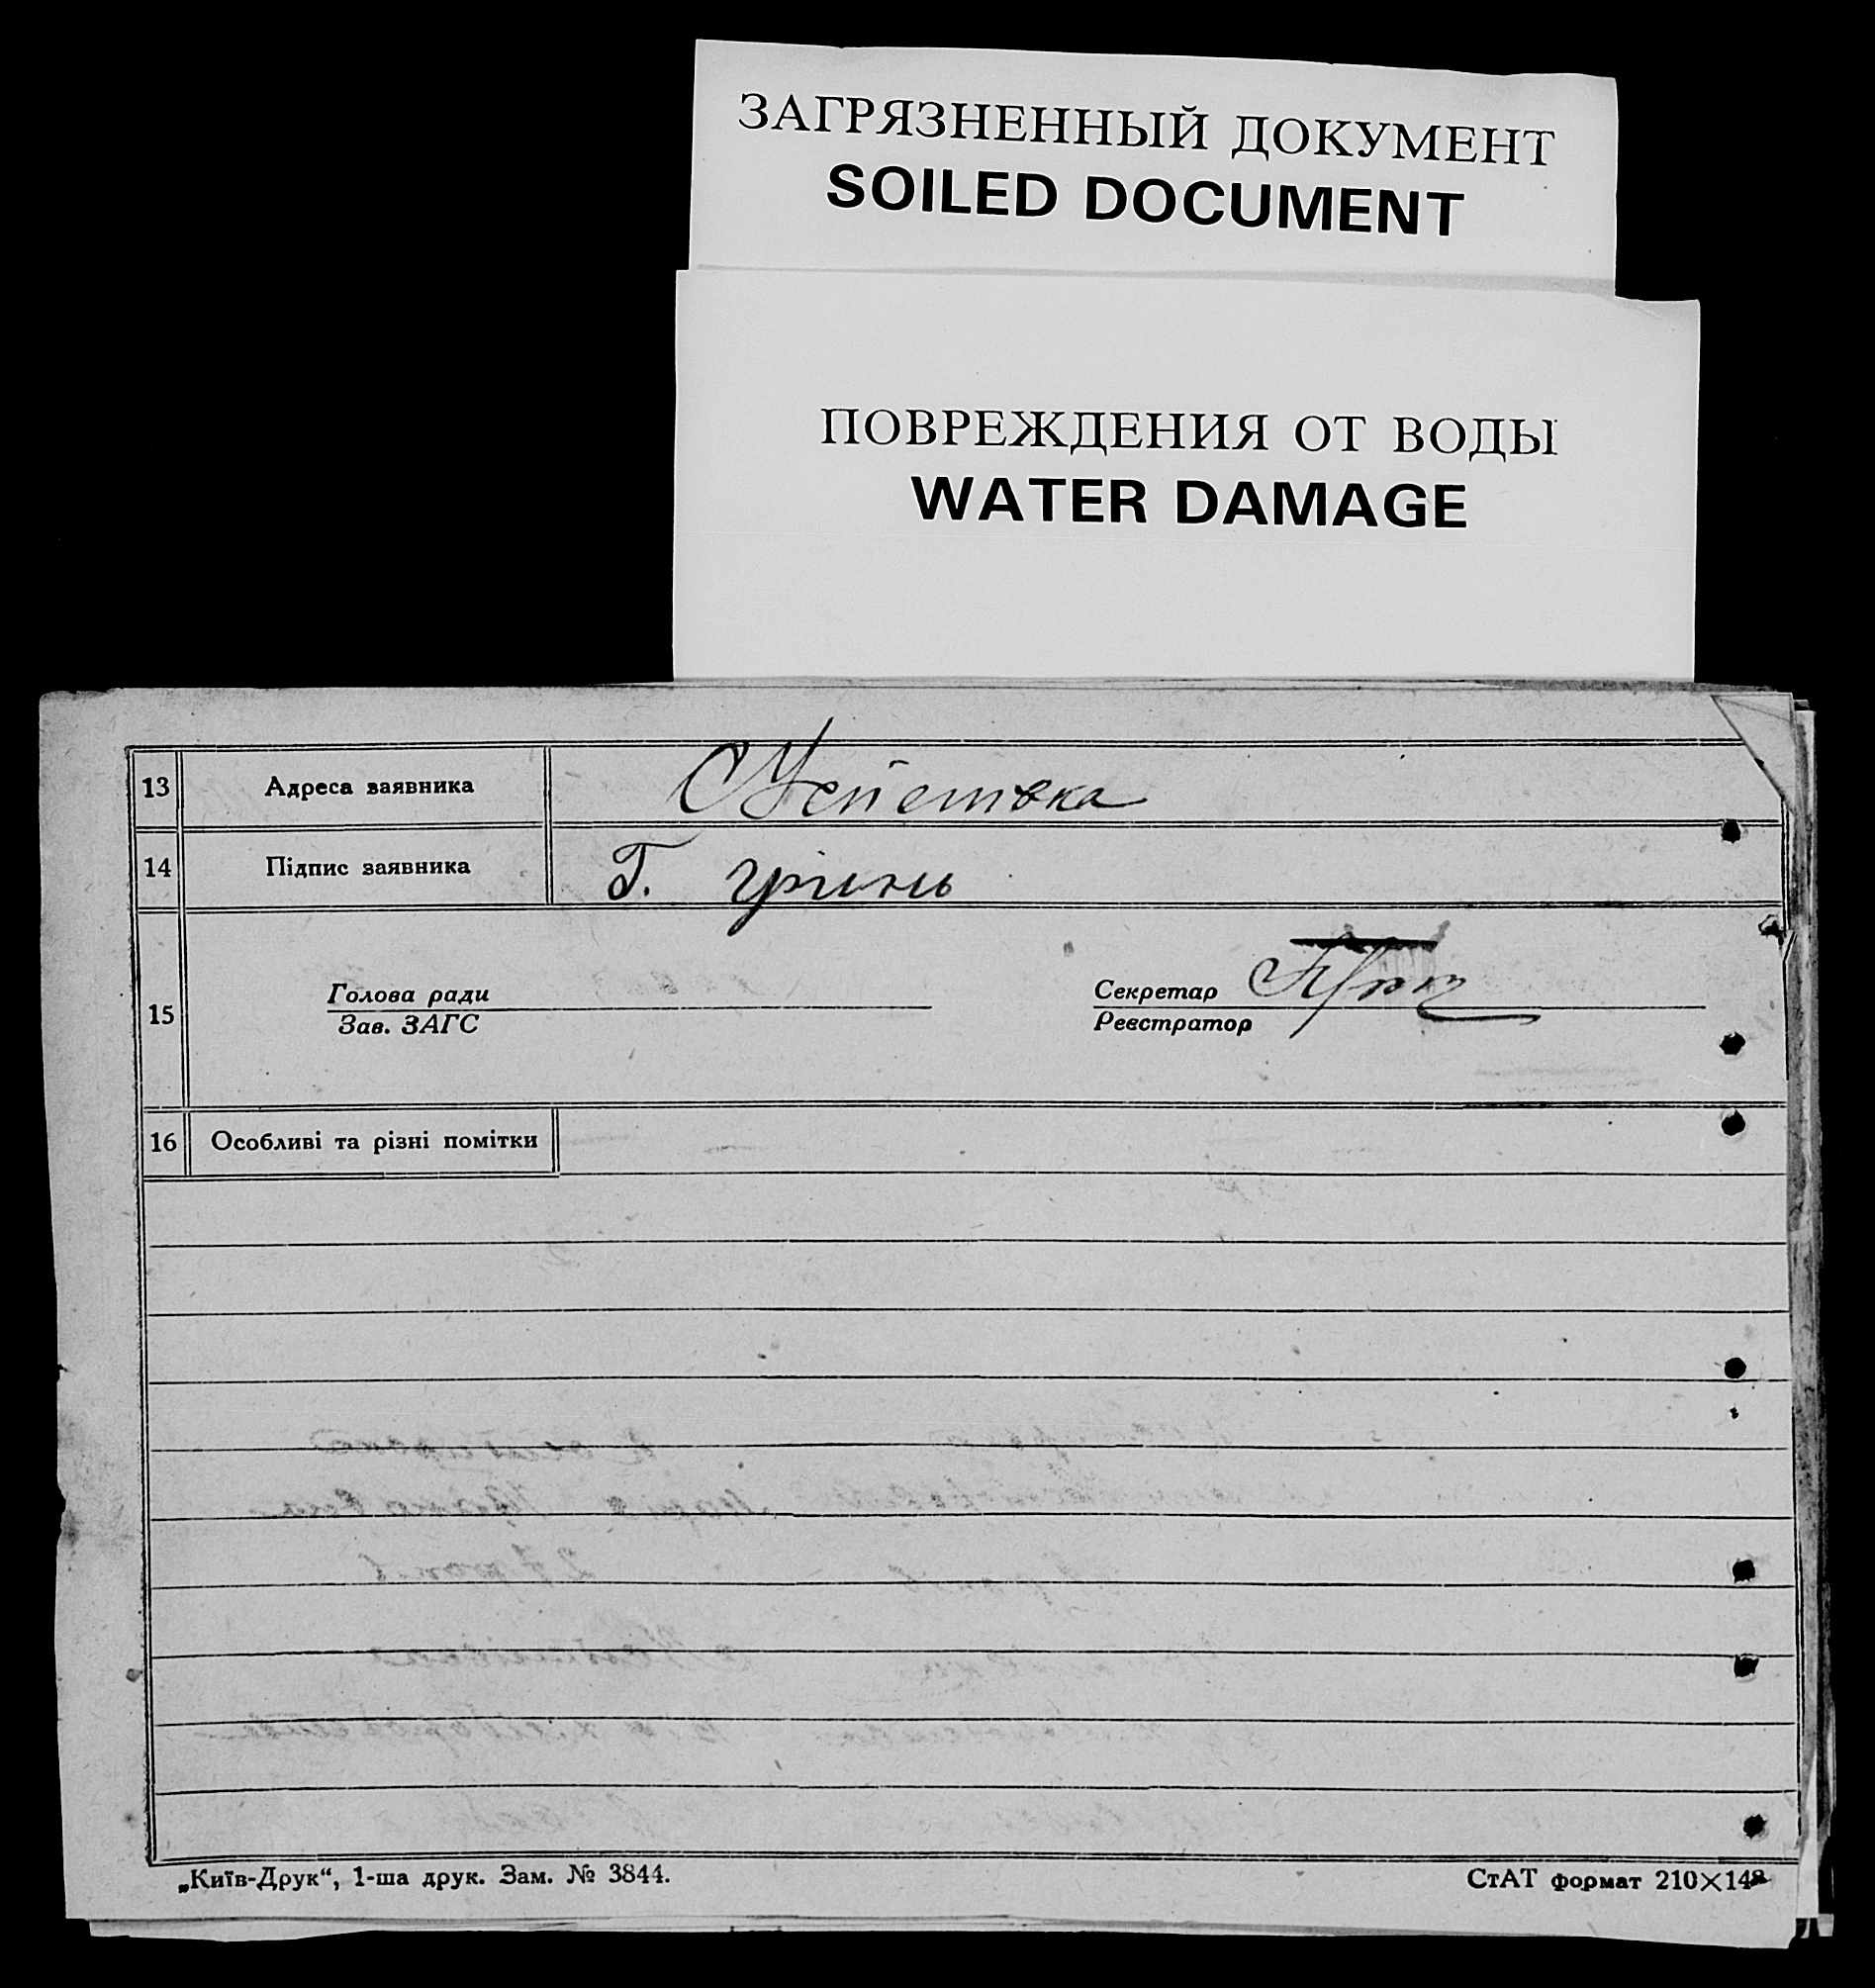 ЗАГРЯЗНЕННЫЙ ДОКУМЕНТ
SOILED DOCUMENT
ПОВРЕЖДЕНИЯ ОТ ВОДЫ
WATER DAMAGE
13 Адреса заявника С
14 Підпис заявника Г. Грінь
Голова ради Секретар
15
Зав. ЗАГС Реєстратор
16 Особливі та різні помітки
„Київ-Друк“, 1-ша друк. Зам. № 3844. СтАТ формат 210×148